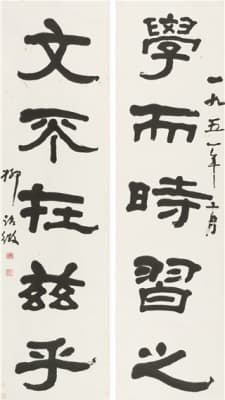 學而時習之
一九五一年
文不在茲乎
柳詒徵